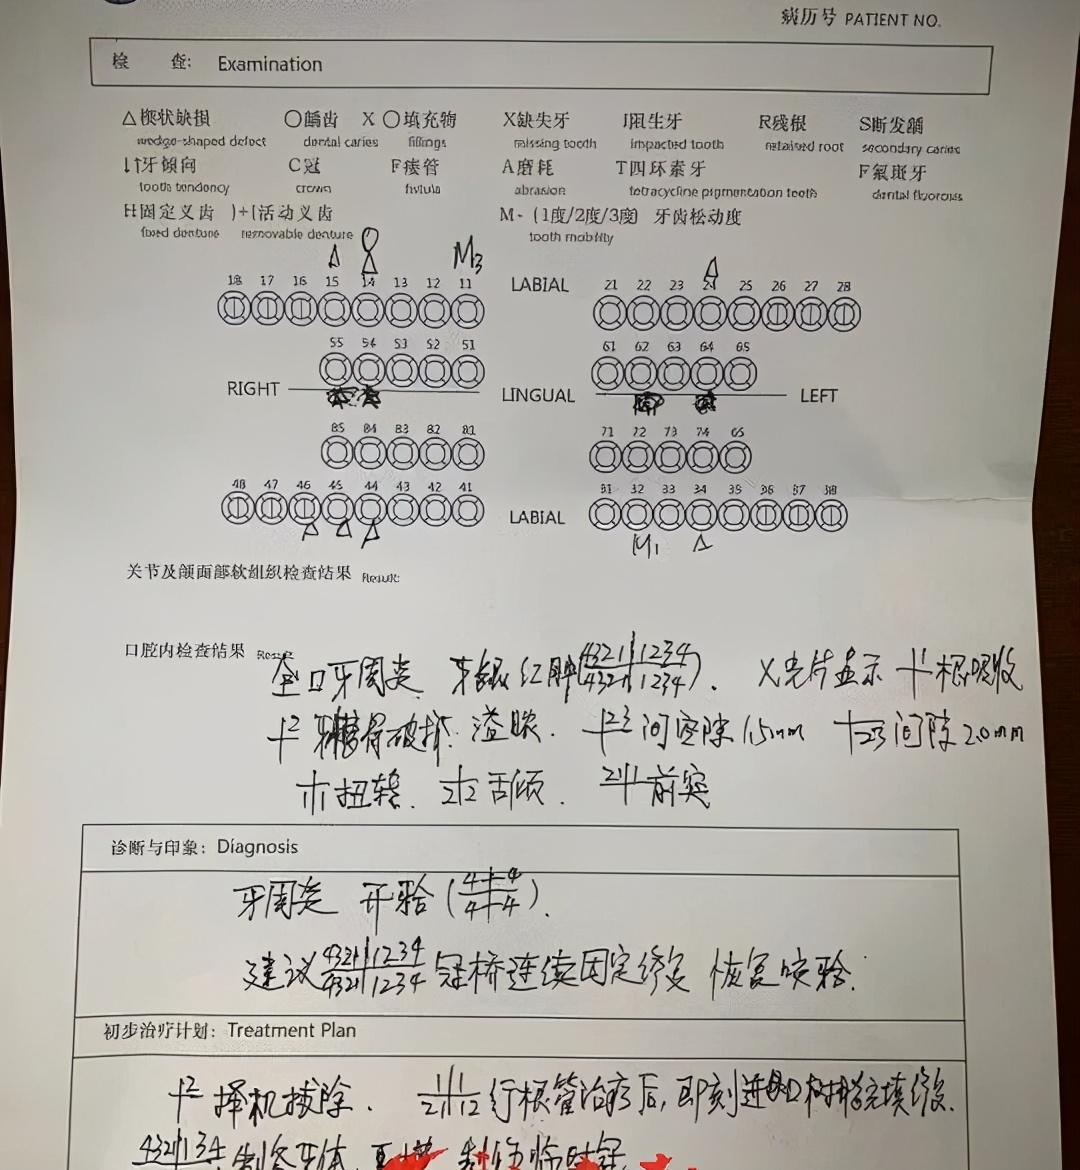 病历号 PATIENT NO.
检 查: Examination
△楔状缺损 ○龋齿 X ○填充物 X缺失牙 I阻生牙 R残根 S继发龋
wedge-shaped defect dental caries fillings missing tooth impacted tooth retained root secondary caries
↓↑牙倾向 C冠 F瘘管 A磨耗 T四环素牙 F氟斑牙
tooth tendency crown fistula abrasion tetracycline pigmentation teeth dental fluorosis
H固定义齿 )+(活动义齿 M- (1度/2度/3度) 牙齿松动度
fixed denture removable denture tooth mobility
△ △ M3 △
18 17 16 15 14 13 12 11 LABIAL 21 22 23 24 25 26 27 28
55 54 53 52 51 61 62 63 64 65
RIGHT LINGUAL LEFT
85 84 83 82 81 71 72 73 74 65
48 47 46 45 44 43 42 41 LABIAL 31 32 33 34 35 36 37 38
△ △ △ M1 △
关节及颌面部软组织检查结果 Result:
口腔内检查结果 Result:
全口牙周炎 牙龈红肿(4321|1234
4321|1234). X光片显示 1 根吸收
2 牙槽骨破坏. 溢脓. 23 间空隙 1.5mm 23 间隙 2.0mm
1|1 扭转. 2|2 舌倾. 21|1 前突
诊断与印象: Diagnosis
牙周炎 开𬌗 (4|4
4|4).
建议 4321|1234
4321|1234 冠桥连续固定修复 恢复咬𬌗.
初步治疗计划: Treatment Plan
2 择机拔除. 1|1
21|12 行根管治疗后, 即刻进口树脂充填修复.
4321|134 制备牙体 临时冠